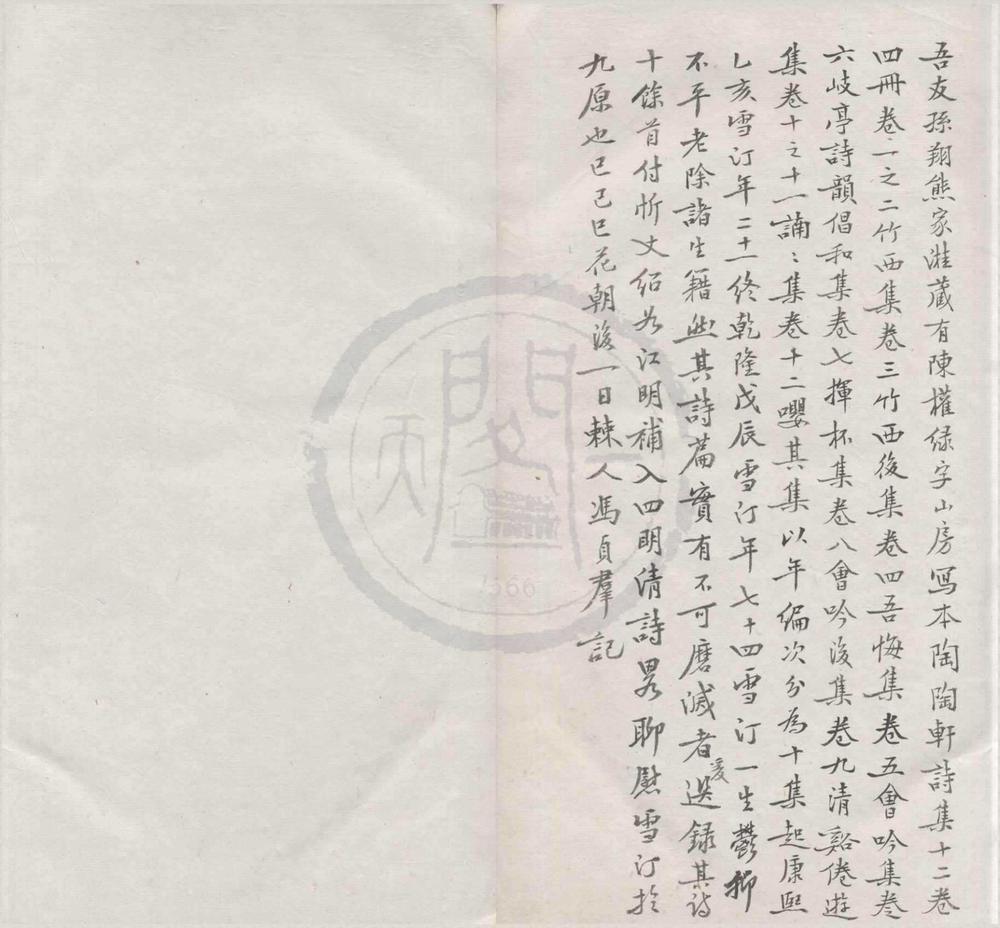 吾友孫翔熊家溎藏有陳權綠字山房寫本陶陶軒詩集十二卷
四冊卷一之二竹西集卷三竹西後集卷四吾悔集卷五會吟集卷
六岐亭詩韻倡和集卷七揮杯集卷八會吟後集卷九清谿倦遊
集卷十之十一諵〻集卷十二嚶其集以年編次分為十集起康熙
乙亥雪汀年二十一終乾隆戊辰雪汀年七十四雪汀一生鬱抑
不平老除諸生籍然其詩篇實有不可磨滅者爰选錄其詩
十餘首付忻丈紹如江明補入四明清詩畧聊慰雪汀於
九原也已己巳花朝後一日棘人馮貞羣記
天一閣
1566